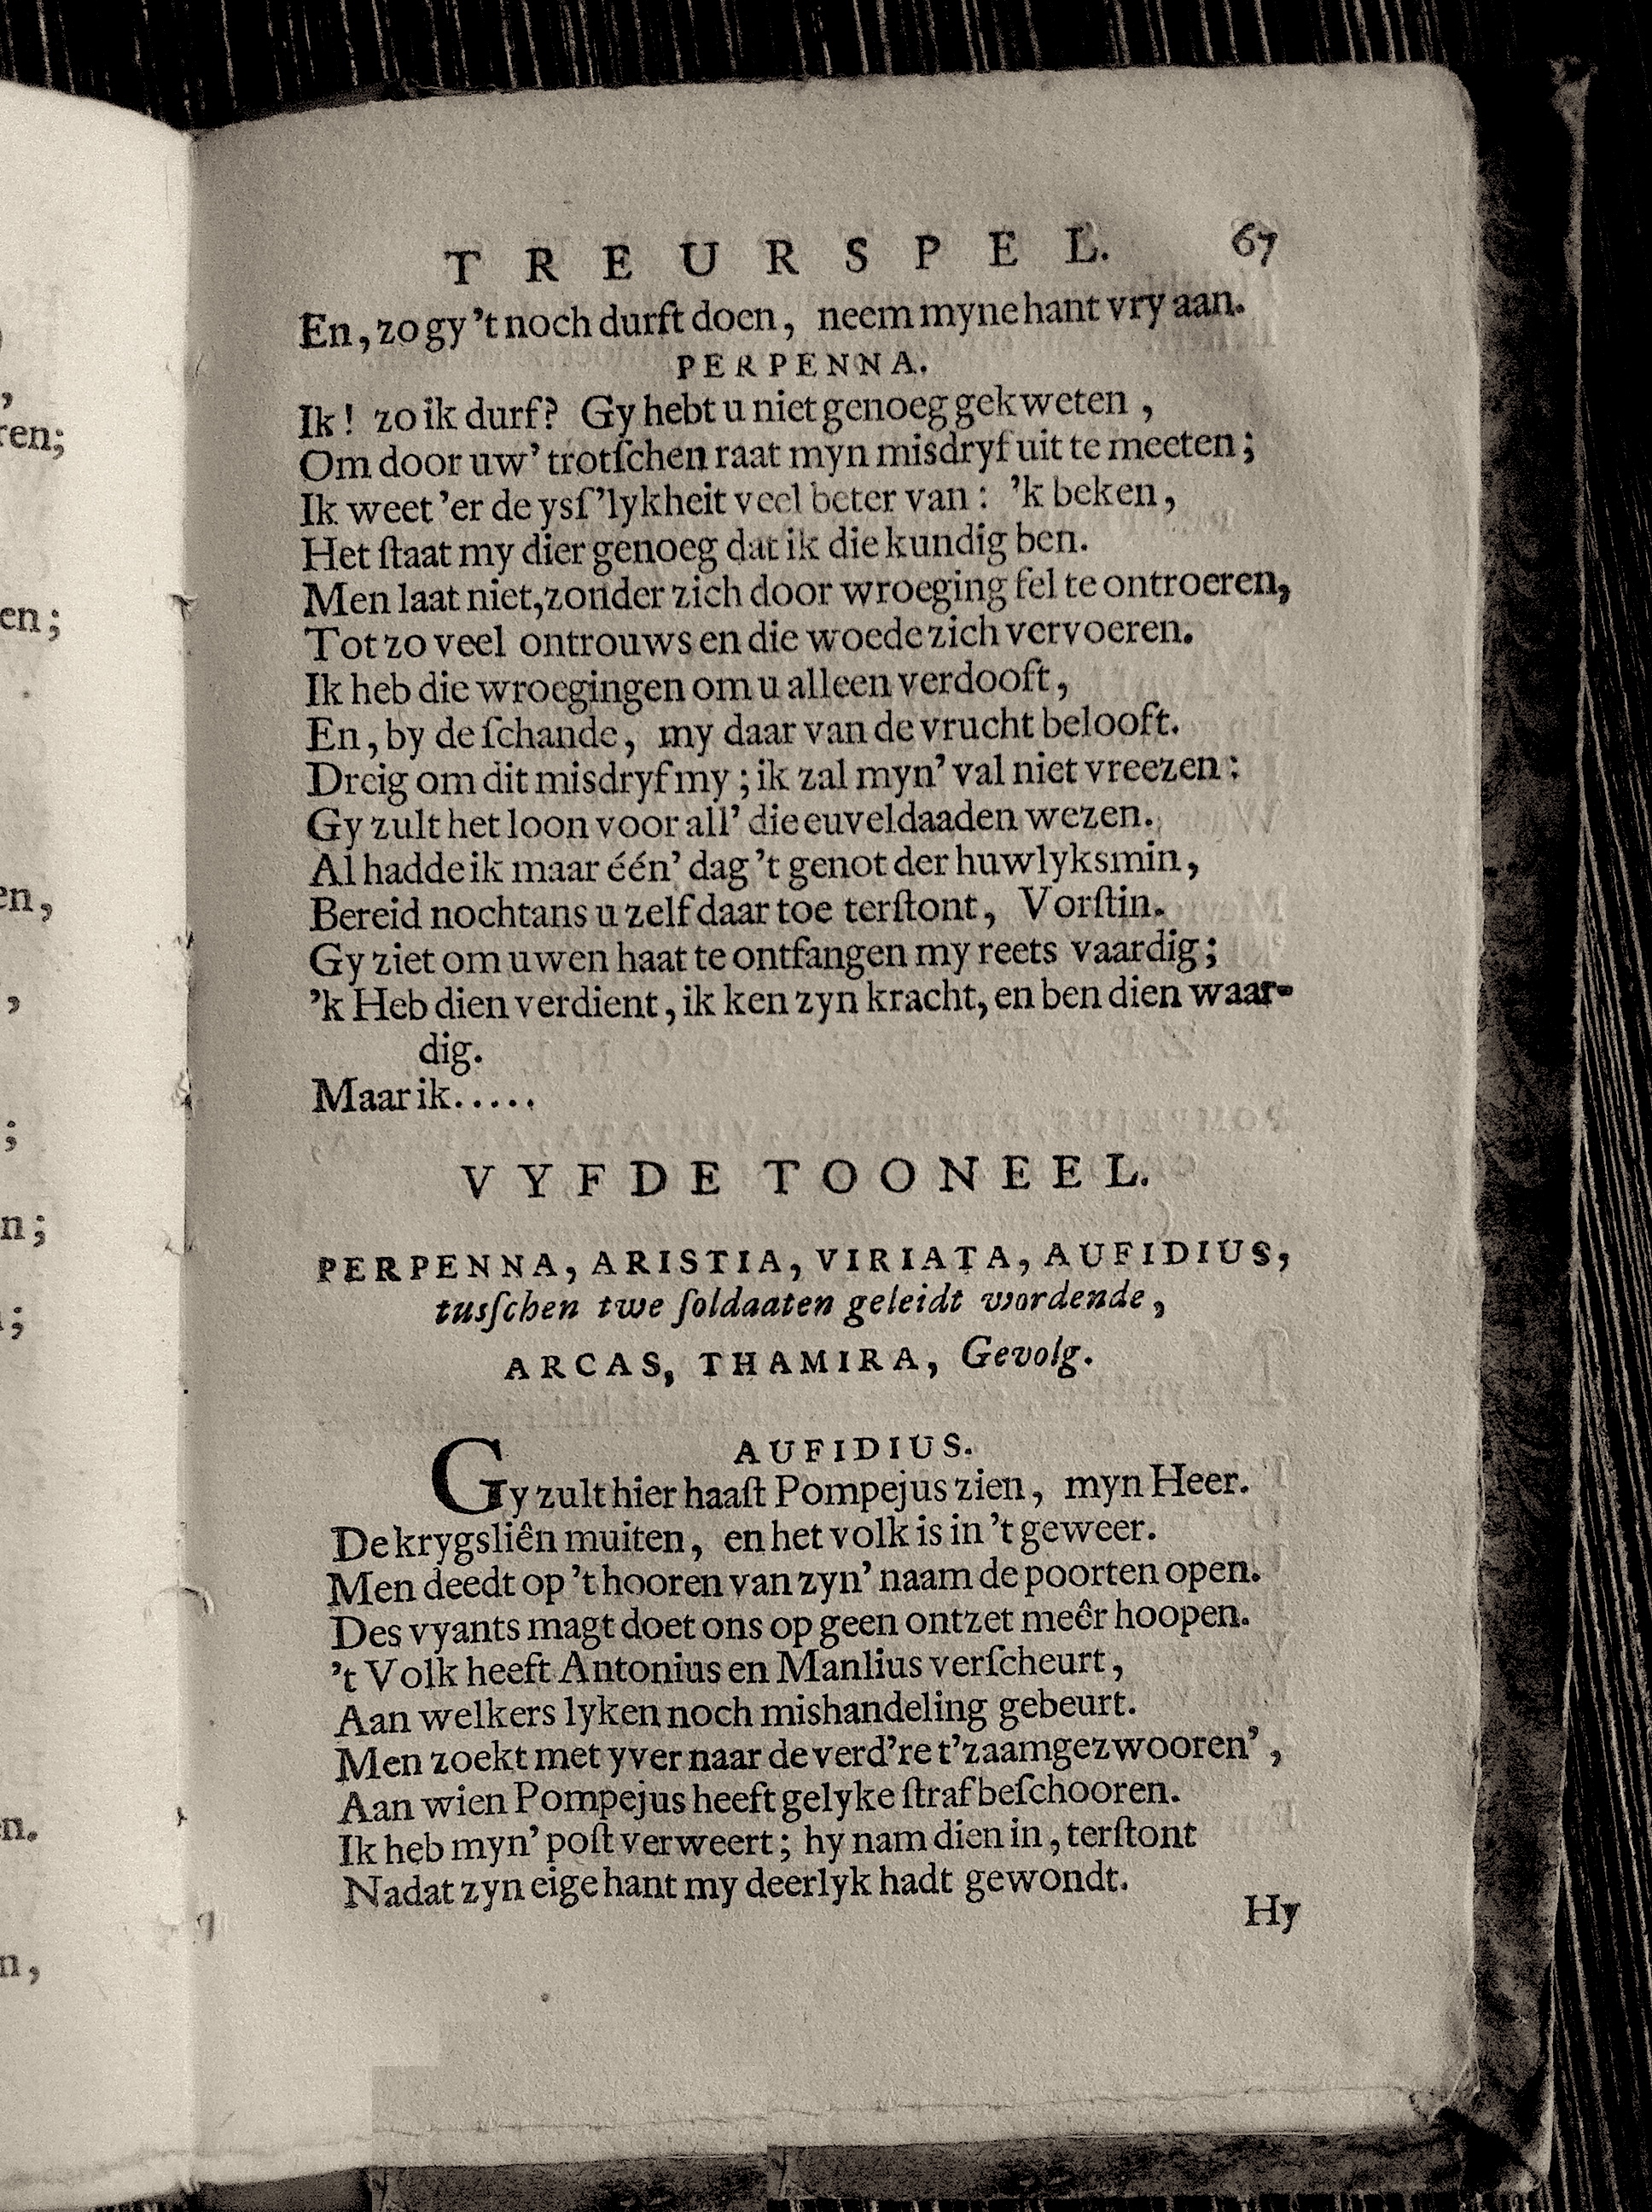 TREURSPEL. 67
En, zo gy 't noch durft doen, neem myne hant vry aan.
PERPENNA.
Ik! zo ik durf? Gy hebt u niet genoeg gekweten,
Om door uw' trotſchen raat myn misdryf uit te meeten;
Ik weet 'er de ysſ'lykheit veel beter van: 'k beken,
Het ſtaat my dier genoeg dat ik die kundig ben.
Men laat niet, zonder zich door wroeging fel te ontroeren,
Tot zo veel ontrouws en die woede zich vervoeren.
Ik heb die wroegingen om u alleen verdooft,
En, by de ſchande, my daar van de vrucht belooft.
Dreig om dit misdryf my; ik zal myn' val niet vreezen:
Gy zult het loon voor all' die euveldaaden wezen.
Al hadde ik maar één' dag 't genot der huwlyksmin,
Bereid nochtans u zelf daar toe terſtont, Vorſtin.
Gy ziet om uwen haat te ontfangen my reets vaardig;
'k Heb dien verdient, ik ken zyn kracht, en ben dien waar-
dig.
Maar ik.....
VYFDE TOONEEL.
PERPENNA, ARISTIA, VIRIATA, AUFIDIUS,
tusſchen twe ſoldaaten geleidt wordende,
ARCAS, THAMIRA, Gevolg.
AUFIDIUS.
Gy zult hier haaſt Pompejus zien, myn Heer.
De krygsliên muiten, en het volk is in 't geweer.
Men deedt op 't hooren van zyn' naam de poorten open.
Des vyants magt doet ons op geen ontzet meêr hoopen.
't Volk heeft Antonius en Manlius verſcheurt,
Aan welkers lyken noch mishandeling gebeurt.
Men zoekt met yver naar de verd're t'zaamgezwooren',
Aan wien Pompejus heeft gelyke ſtraf beſchooren.
Ik heb myn' poſt verweert; hy nam dien in, terſtont
Nadat zyn eige hant my deerlyk hadt gewondt.
Hy